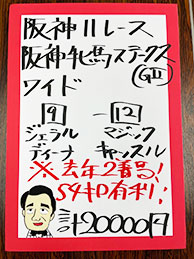 阪神11レース
阪神牝馬ステークス
(GⅡ)
ワイド
9 - 12
ジェラルディーナ マジックキャッスル
※去年2着馬!
54キロ有利!
計20000円